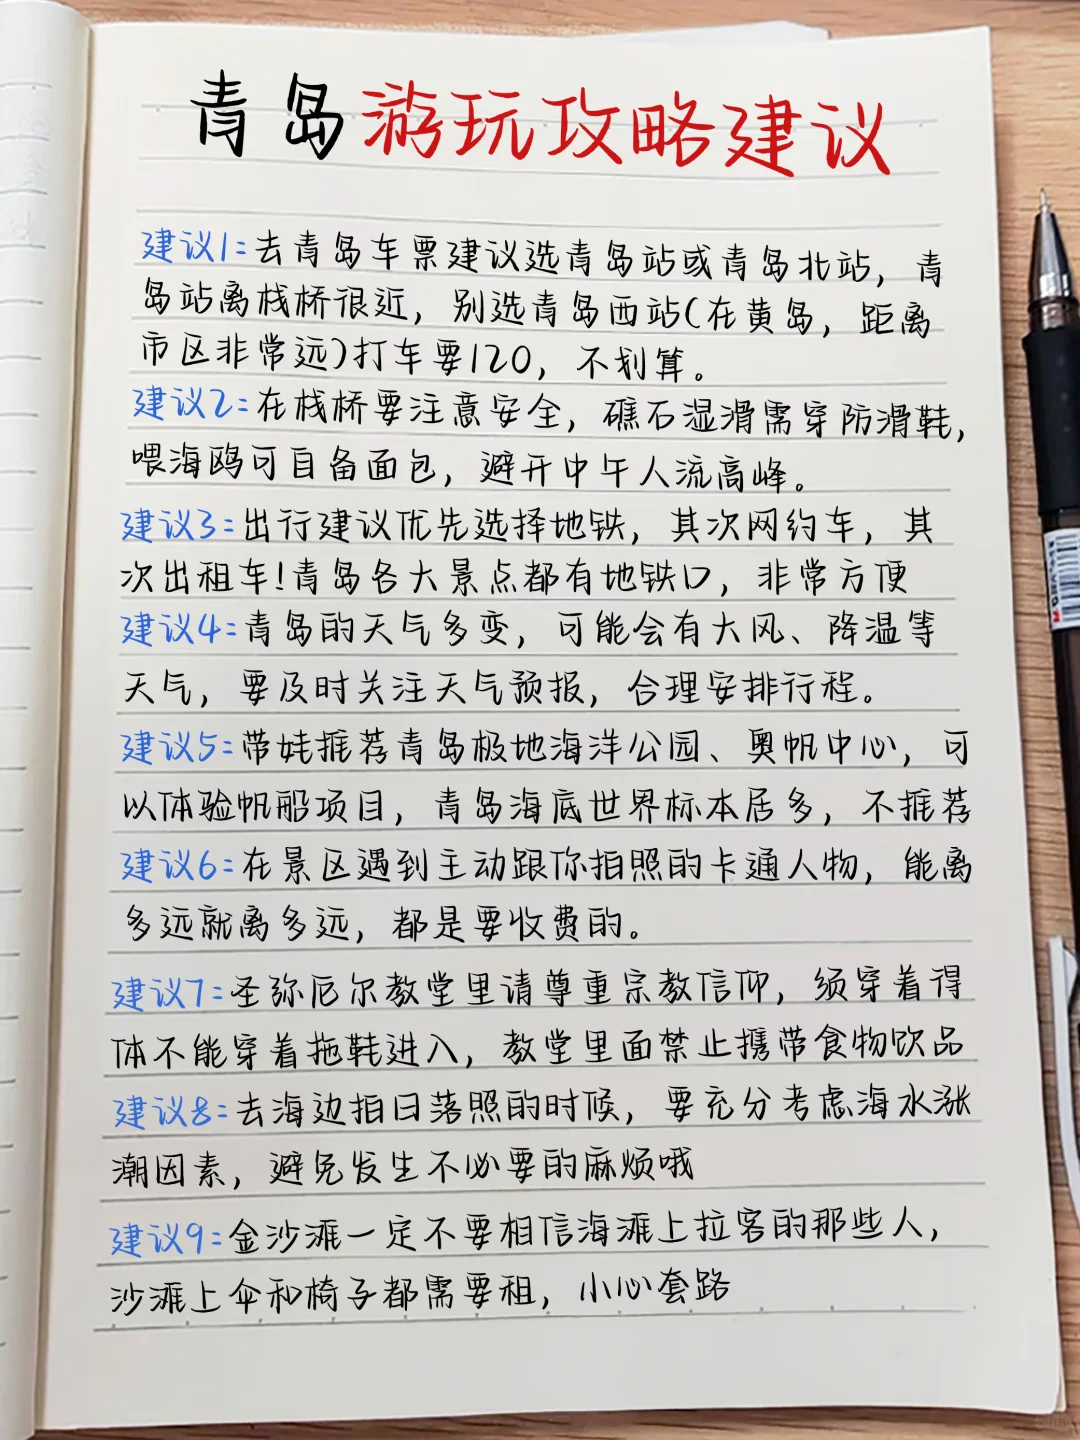 青岛游玩攻略建议
建议1:去青岛车票建议选青岛站或青岛北站，青
岛站离栈桥很近，别选青岛西站(在黄岛，距离
市区非常远)打车要120，不划算。
建议2:在栈桥要注意安全，礁石湿滑需穿防滑鞋，
喂海鸥可自备面包，避开中午人流高峰。
建议3:出行建议优先选择地铁，其次网约车，其
次出租车!青岛各大景点都有地铁口，非常方便
建议4:青岛的天气多变，可能会有大风、降温等
天气，要及时关注天气预报，合理安排行程。
建议5:带娃推荐青岛极地海洋公园、奥帆中心，可
以体验帆船项目，青岛海底世界标本居多，不推荐
建议6:在景区遇到主动跟你拍照的卡通人物，能离
多远就离多远，都是要收费的。
建议7:圣弥厄尔教堂里请尊重宗教信仰，须穿着得
体不能穿着拖鞋进入，教堂里面禁止携带食物饮品
建议8:去海边拍日落照的时候，要充分考虑海水涨
潮因素，避免发生不必要的麻烦哦
建议9:金沙滩一定不要相信海滩上拉客的那些人，
沙滩上伞和椅子都需要租，小心套路